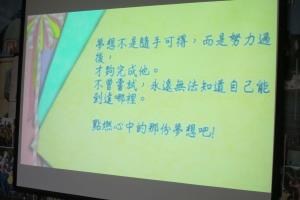 夢想不是隨手可得，而是努力過
後，
才夠完成他。
不曾嘗試，永遠無法知道自己能
到達哪裡。
點燃心中的那份夢想吧!